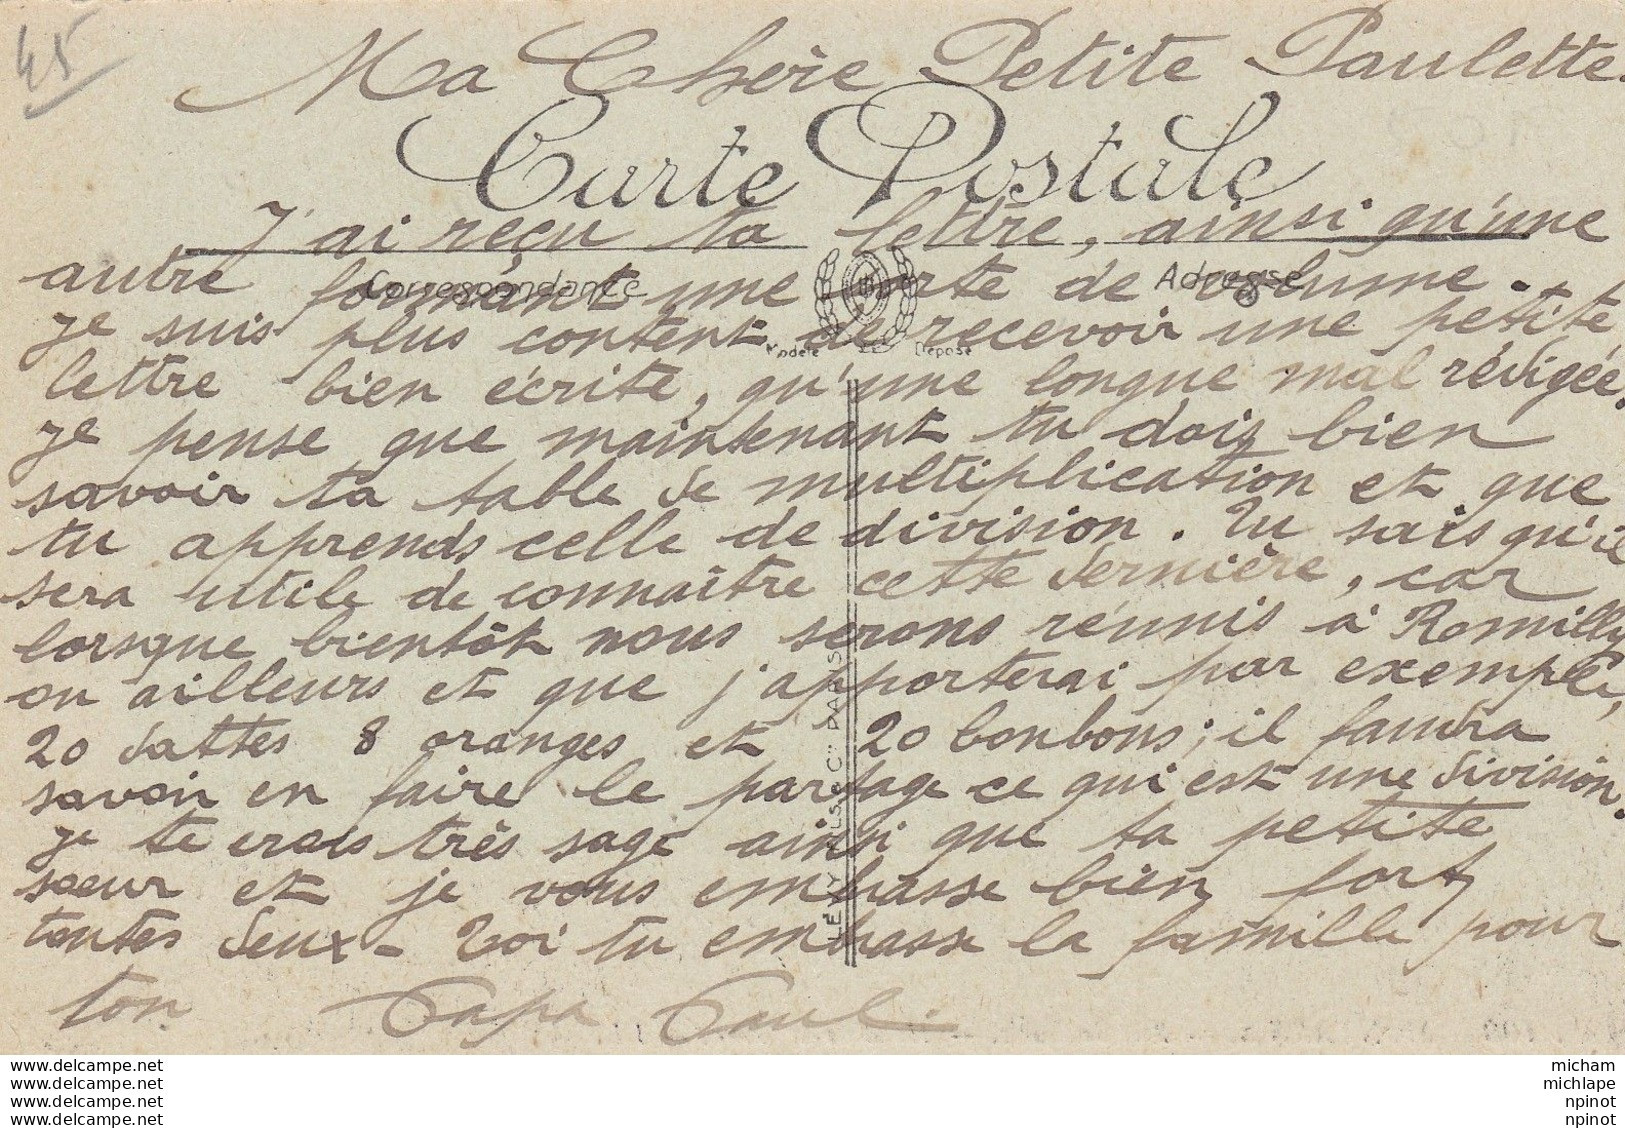 45
Ma Chère Petite Paulette.
Carte Postale
J'ai reçu ta lettre, ainsi qu'une
Correspondance
Adresse
autre formant une sorte de volume.
Je suis plus content de recevoir une petite
Modèle Déposé
lettre bien écrite, qu'une longue mal rédigée.
Je pense que maintenant tu dois bien
savoir ta table de multiplication et que
tu apprends celle de division. Tu sais qu'il
sera utile de connaître cette dernière, car
lorsque bientôt nous serons réunis à Romilly
ou ailleurs et que j'apporterai par exemple,
20 dattes 8 oranges et 20 bonbons; il faudra
savoir en faire le partage ce qui est une division.
Je te crois très sage ainsi que ta petite
sœur et je vous embrasse bien fort
toutes deux - Toi tu embrasse la famille pour
ton Papa Paul.
LÉVY FILS & Cie PARIS
www.delcampe.net
www.delcampe.net
www.delcampe.net
www.delcampe.net
micham
michlape
npinot
npinot